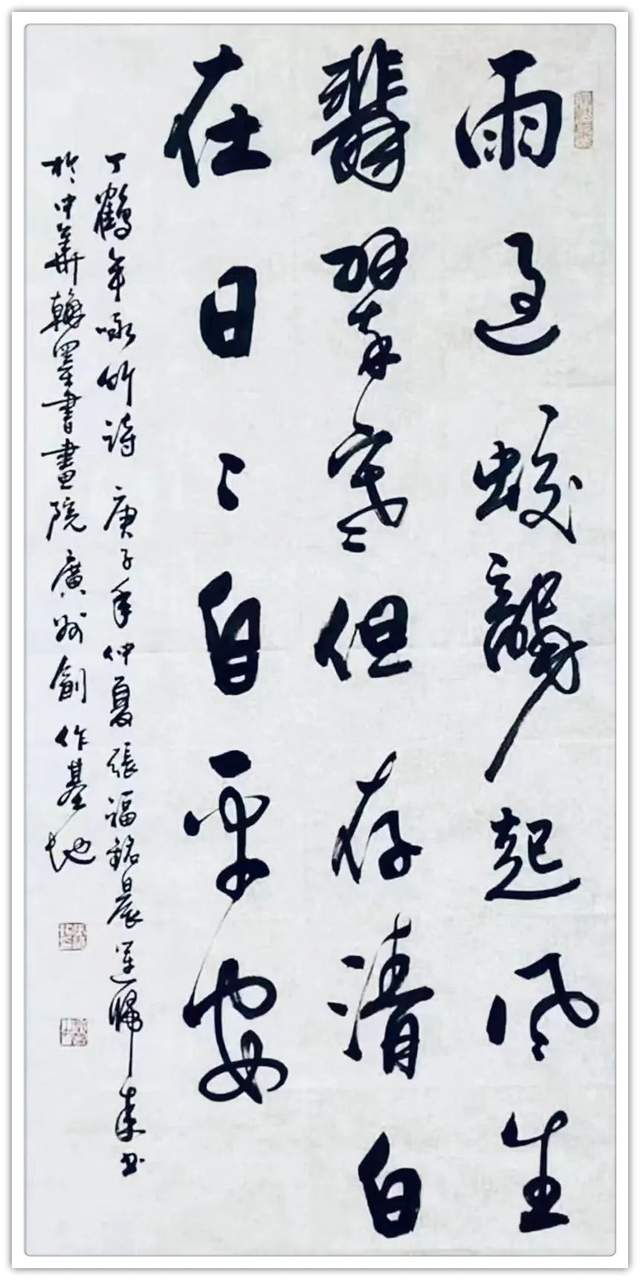 雨過蛟龍起風生
翡翠寒但存清白
在日〻自平安
丁鶴年咏竹詩庚子年仲夏張福銘晨運歸來書
於中華翰墨書畫院廣州創作基地